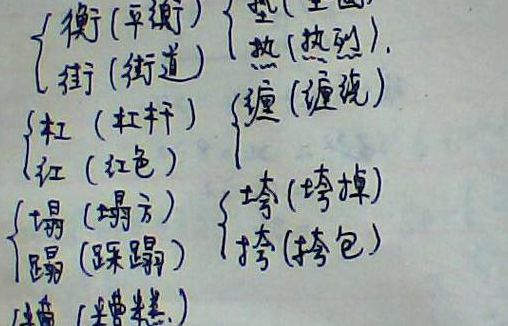 衡（平衡）
街（街道）
杠（杠杆）
红（红色）
塌（塌方）
蹋（踩蹋）
糟（糟糕.）
垫（垫
热（热烈）.
缠（缠绕）
垮（垮掉）
挎（挎包）